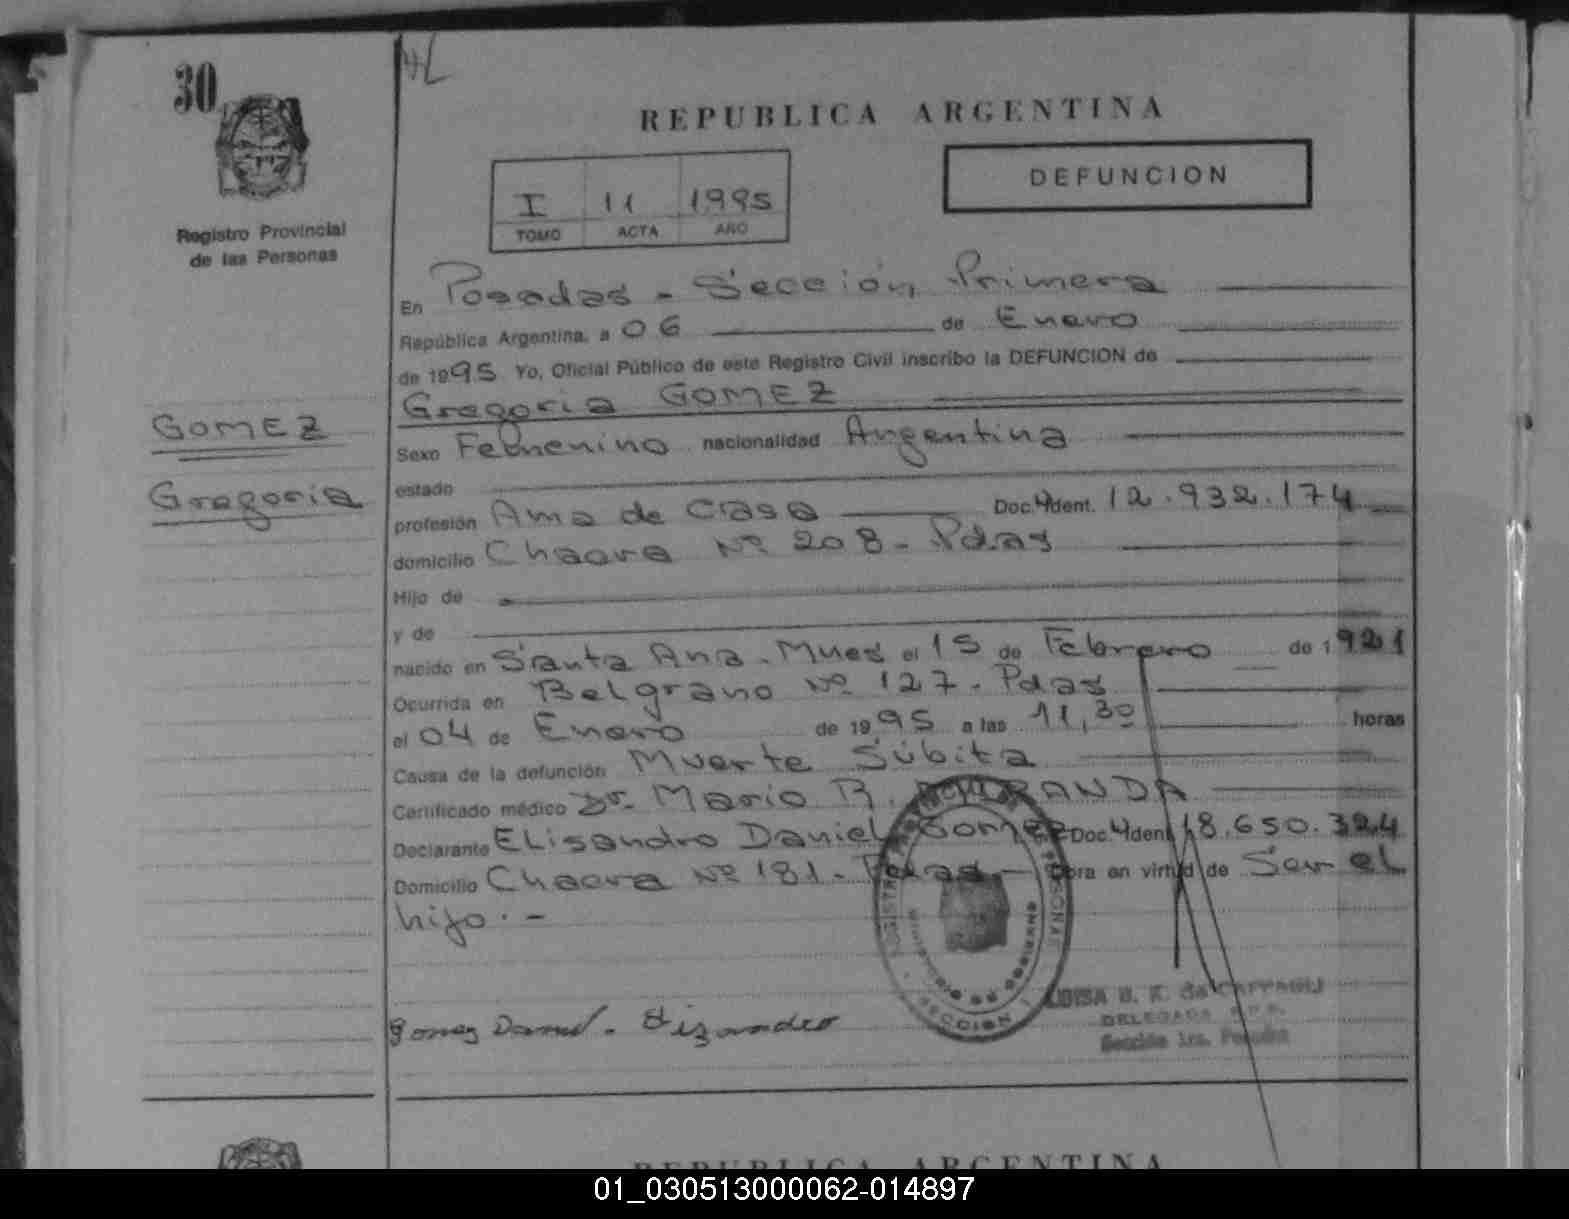 30
REPUBLICA ARGENTINA
I 11 1995
TOMO ACTA AÑO
DEFUNCION
Registro Provincial
de las Personas
En Posadas - Sección Primera
República Argentina, a 06 de Enero
de 1995 Yo, Oficial Público de este Registro Civil inscribo la DEFUNCION de
Gregoria GOMEZ
GOMEZ
Gregoria
Sexo Femenino nacionalidad Argentina
estado
profesión Ama de Casa Doc. Ident. 12.932.174
domicilio Chacra Nº 208 - Pdas
Hijo de
y de
nacido en Santa Ana - Mnes el 15 de Febrero de 1921
Ocurrida en Belgrano Nº 127 - Pdas
el 04 de Enero de 1995 a las 11,30 horas
Causa de la defunción Muerte Súbita
Certificado médico Dr. Mario R.
Declarante Elisandro Daniel Gomez Doc. Ident. 18.650.324
Domicilio Chacra Nº 181 - Pdas - Obra en virtud de Ser el
hijo. -
Gomez Daniel
LUISA B. K. de
DELEGADA R.P.P.
Sección 1ra. Posadas
MINISTERIO DE GOBIERNO
SECCION 1
REPUBLICA ARGENTINA
01_030513000062-014897